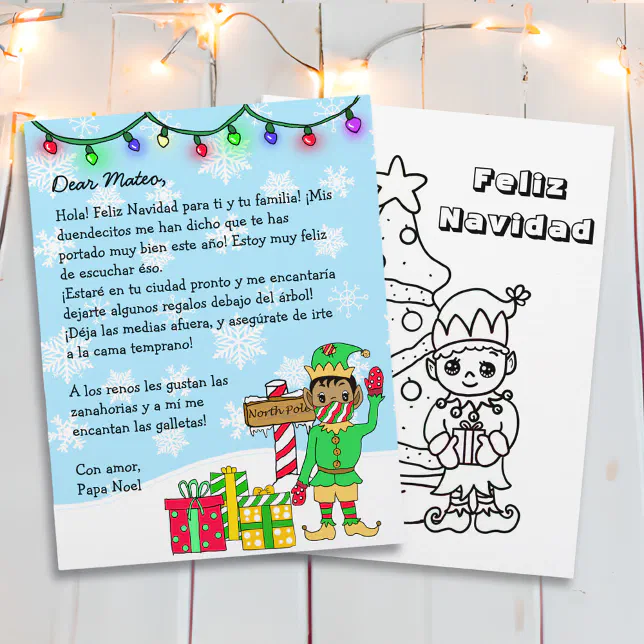 Dear Mateo,
Hola! Feliz Navidad para ti y tu familia! ¡Mis
duendecitos me han dicho que te has
portado muy bien este año! Estoy muy feliz
de escuchar éso.
¡Estaré en tu ciudad pronto y me encantaría
dejarte algunos regalos debajo del árbol!
¡Déja las medias afuera, y asegúrate de irte
a la cama temprano!
A los renos les gustan las
zanahorias y a mí me
encantan las galletas!
Con amor,
Papa Noel
North Pole
Feliz
Navidad